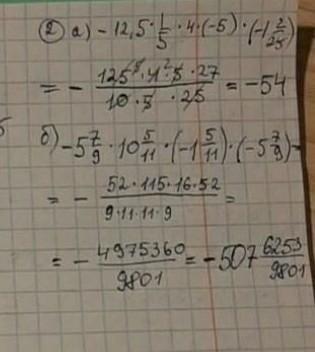 ② а) -12,5 · 1/5 · 4 · (-5) · (-1 2/25)
= - 125 · 4 · 5 · 27 / 10 · 5 · 25 = -54
б) -5 7/9 · 10 5/11 · (-1 5/11) · (-5 7/9) =
= - 52 · 115 · 16 · 52 / 9 · 11 · 11 · 9 =
= - 4975360 / 9801 = -507 6253/9801